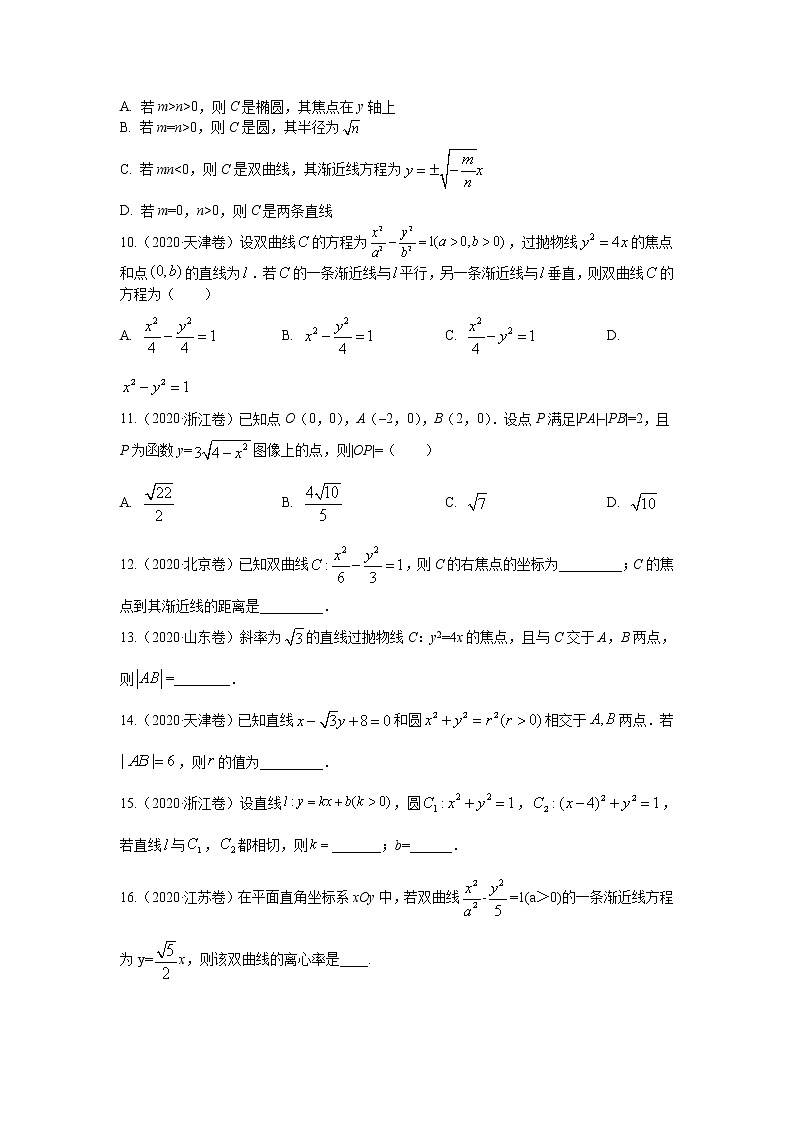 A. 若m>n>0,则C是椭圆,其焦点在y轴上
B. 若m=n>0,则C是圆,其半径为√n
C. 若mn<0,则C是双曲线,其渐近线方程为y=±√(-m/n)x
D. 若m=0,n>0,则C是两条直线
10.(2020·天津卷)设双曲线C的方程为x²/a²-y²/b²=1(a>0,b>0),过抛物线y²=4x的焦点
和点(0,b)的直线为l.若C的一条渐近线与l平行,另一条渐近线与l垂直,则双曲线C的
方程为( )
A. x²/4-y²/4=1 B. x²-y²/4=1 C. x²/4-y²=1 D.
x²-y²=1
11.(2020·浙江卷)已知点O(0,0),A(–2,0),B(2,0).设点P满足|PA|–|PB|=2,且
P为函数y=3√(4-x²)图像上的点,则|OP|=( )
A. √22/2 B. 4√10/5 C. √7 D. √10
12.(2020·北京卷)已知双曲线C:x²/6-y²/3=1,则C的右焦点的坐标为_________;C的焦
点到其渐近线的距离是_________.
13.(2020·山东卷)斜率为√3的直线过抛物线C:y²=4x的焦点,且与C交于A,B两点,
则|AB|=________.
14.(2020·天津卷)已知直线x-√3y+8=0和圆x²+y²=r²(r>0)相交于A,B两点.若
|AB|=6,则r的值为_________.
15.(2020·浙江卷)设直线l:y=kx+b(k>0),圆C₁:x²+y²=1,C₂:(x-4)²+y²=1,
若直线l与C₁,C₂都相切,则k=_______;b=______.
16.(2020·江苏卷)在平面直角坐标系xOy中,若双曲线x²/a²-y²/5=1(a>0)的一条渐近线方程
为y=√5/2x,则该双曲线的离心率是____.